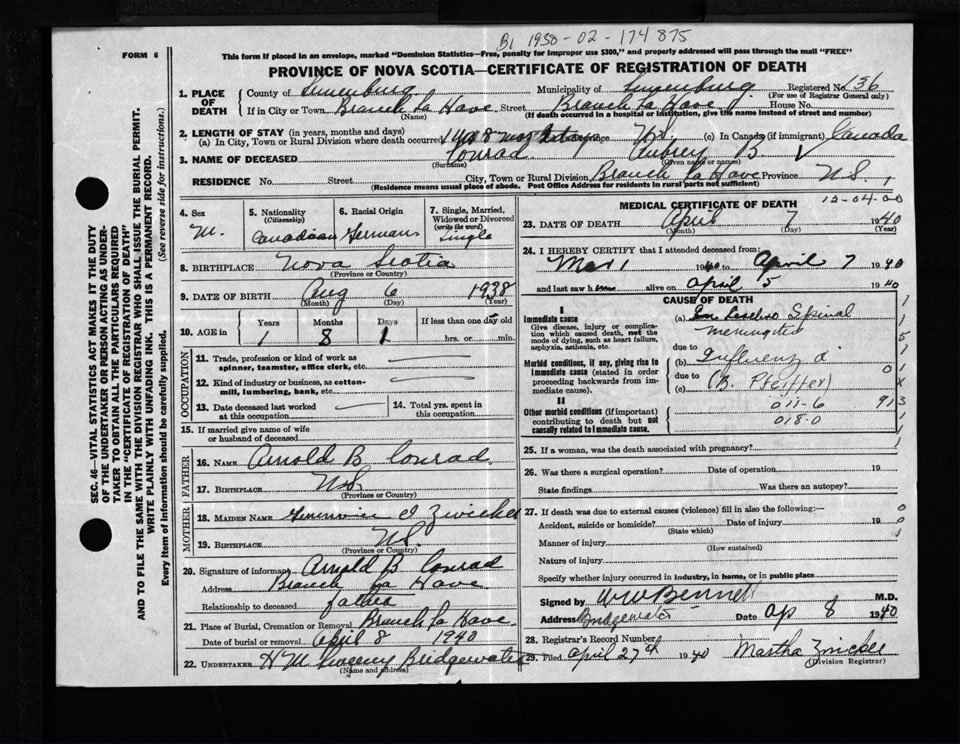 B1 1938-02-174875
FORM 6
This form if placed in an envelope, marked "Dominion Statistics—Free, penalty for improper use $300," and properly addressed will pass through the mail "FREE"
PROVINCE OF NOVA SCOTIA—CERTIFICATE OF REGISTRATION OF DEATH
SEC. 46—VITAL STATISTICS ACT MAKES IT THE DUTY
OF THE UNDERTAKER OR PERSON ACTING AS UNDER-
TAKER TO OBTAIN ALL THE PARTICULARS REQUIRED
IN THE "CERTIFICATE OF REGISTRATION OF DEATH"
AND TO FILE THE SAME WITH THE DIVISION REGISTRAR WHO SHALL ISSUE THE BURIAL PERMIT.
WRITE PLAINLY WITH UNFADING INK. THIS IS A PERMANENT RECORD.
Every item of information should be carefully supplied. (See reverse side for instructions.)
1. PLACE OF DEATH County of Lunenburg Municipality of Lunenburg Registered No. 136
(For use of Registrar General only)
If in City or Town Branch La Have Street Branch La Have House No.
(Name) (If death occurred in a hospital or institution, give the name instead of street and number)
2. LENGTH OF STAY (in years, months and days)
(a) In City, Town or Rural Division where death occurred 1 yr 8 mos 1 day (c) In Canada (if immigrant) Canada
3. NAME OF DECEASED Conrad Aubrey B. V
(Surname) (Given name or names)
RESIDENCE No. Street City, Town or Rural Division Branch La Have Province N.S.
(Residence means usual place of abode. Post Office Address for residents in rural parts not sufficient)
4. Sex M.
5. Nationality (Citizenship) Canadian
6. Racial Origin German
7. Single, Married, Widowed or Divorced (write the word) Single
8. BIRTHPLACE Nova Scotia
(Province or Country)
9. DATE OF BIRTH Aug 6 1938
(Month) (Day) (Year)
10. AGE in Years Months Days If less than one day old
1 8 1 hrs. or min.
OCCUPATION
11. Trade, profession or kind of work as spinner, teamster, office clerk, etc.
12. Kind of industry or business, as cotton-mill, lumbering, bank, etc.
13. Date deceased last worked at this occupation
14. Total yrs. spent in this occupation
15. If married give name of wife or husband of deceased
FATHER
16. NAME Arnold B Conrad
17. BIRTHPLACE N.S.
(Province or Country)
MOTHER
18. MAIDEN NAME I Zwicker
19. BIRTHPLACE N.S.
(Province or Country)
20. Signature of informant Arnold B Conrad
Address Branch La Have
Relationship to deceased father
21. Place of Burial, Cremation or Removal Branch La Have
Date of burial or removal April 8 1940
22. UNDERTAKER H M Sweeny Bridgewater
(Name and address)
MEDICAL CERTIFICATE OF DEATH
12-04-00
23. DATE OF DEATH April 7 1940
(Month) (Day) (Year)
24. I HEREBY CERTIFY that I attended deceased from:
Mar 1 1940 to April 7 1940
and last saw alive on April 5 1940
CAUSE OF DEATH
I
Immediate cause
Give disease, injury or complication which caused death, not the mode of dying, such as heart failure, asphyxia, asthenia, etc.
(a) Cerebro Spinal
Meningitis
due to
Morbid conditions, if any, giving rise to immediate cause (stated in order proceeding backwards from immediate cause).
(b) Influenza
due to
(c) (B. Pfeiffer)
II
Other morbid conditions (if important) contributing to death but not causally related to immediate cause.
011-6
018.0
25. If a woman, was the death associated with pregnancy?
26. Was there a surgical operation? Date of operation 19
State findings Was there an autopsy?
27. If death was due to external causes (violence) fill in also the following:—
Accident, suicide or homicide? Date of injury 19
(State which)
Manner of injury
(How sustained)
Nature of injury
Specify whether injury occurred in industry, in home, or in public place
Signed by W W Bennett M.D.
Address Bridgewater Date Ap 8 1940
28. Registrar's Record Number
29. Filed April 27th 1940 Martha Zwicker
(Division Registrar)